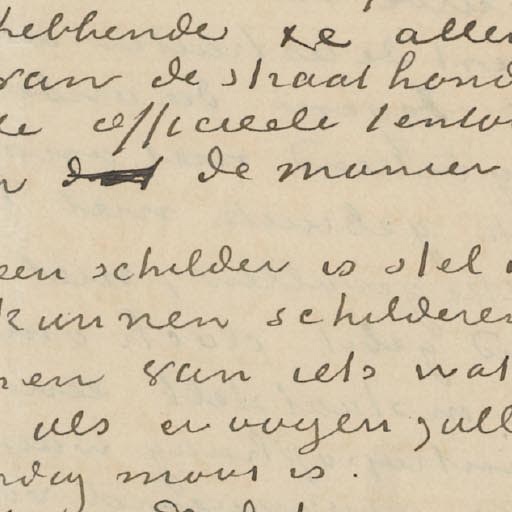 hebbende ze alle
van de straat hond
de officieele tento
de manier
een schilder is stel
kunnen schilderen
van iets wat
als er oogen zull
mooi is.